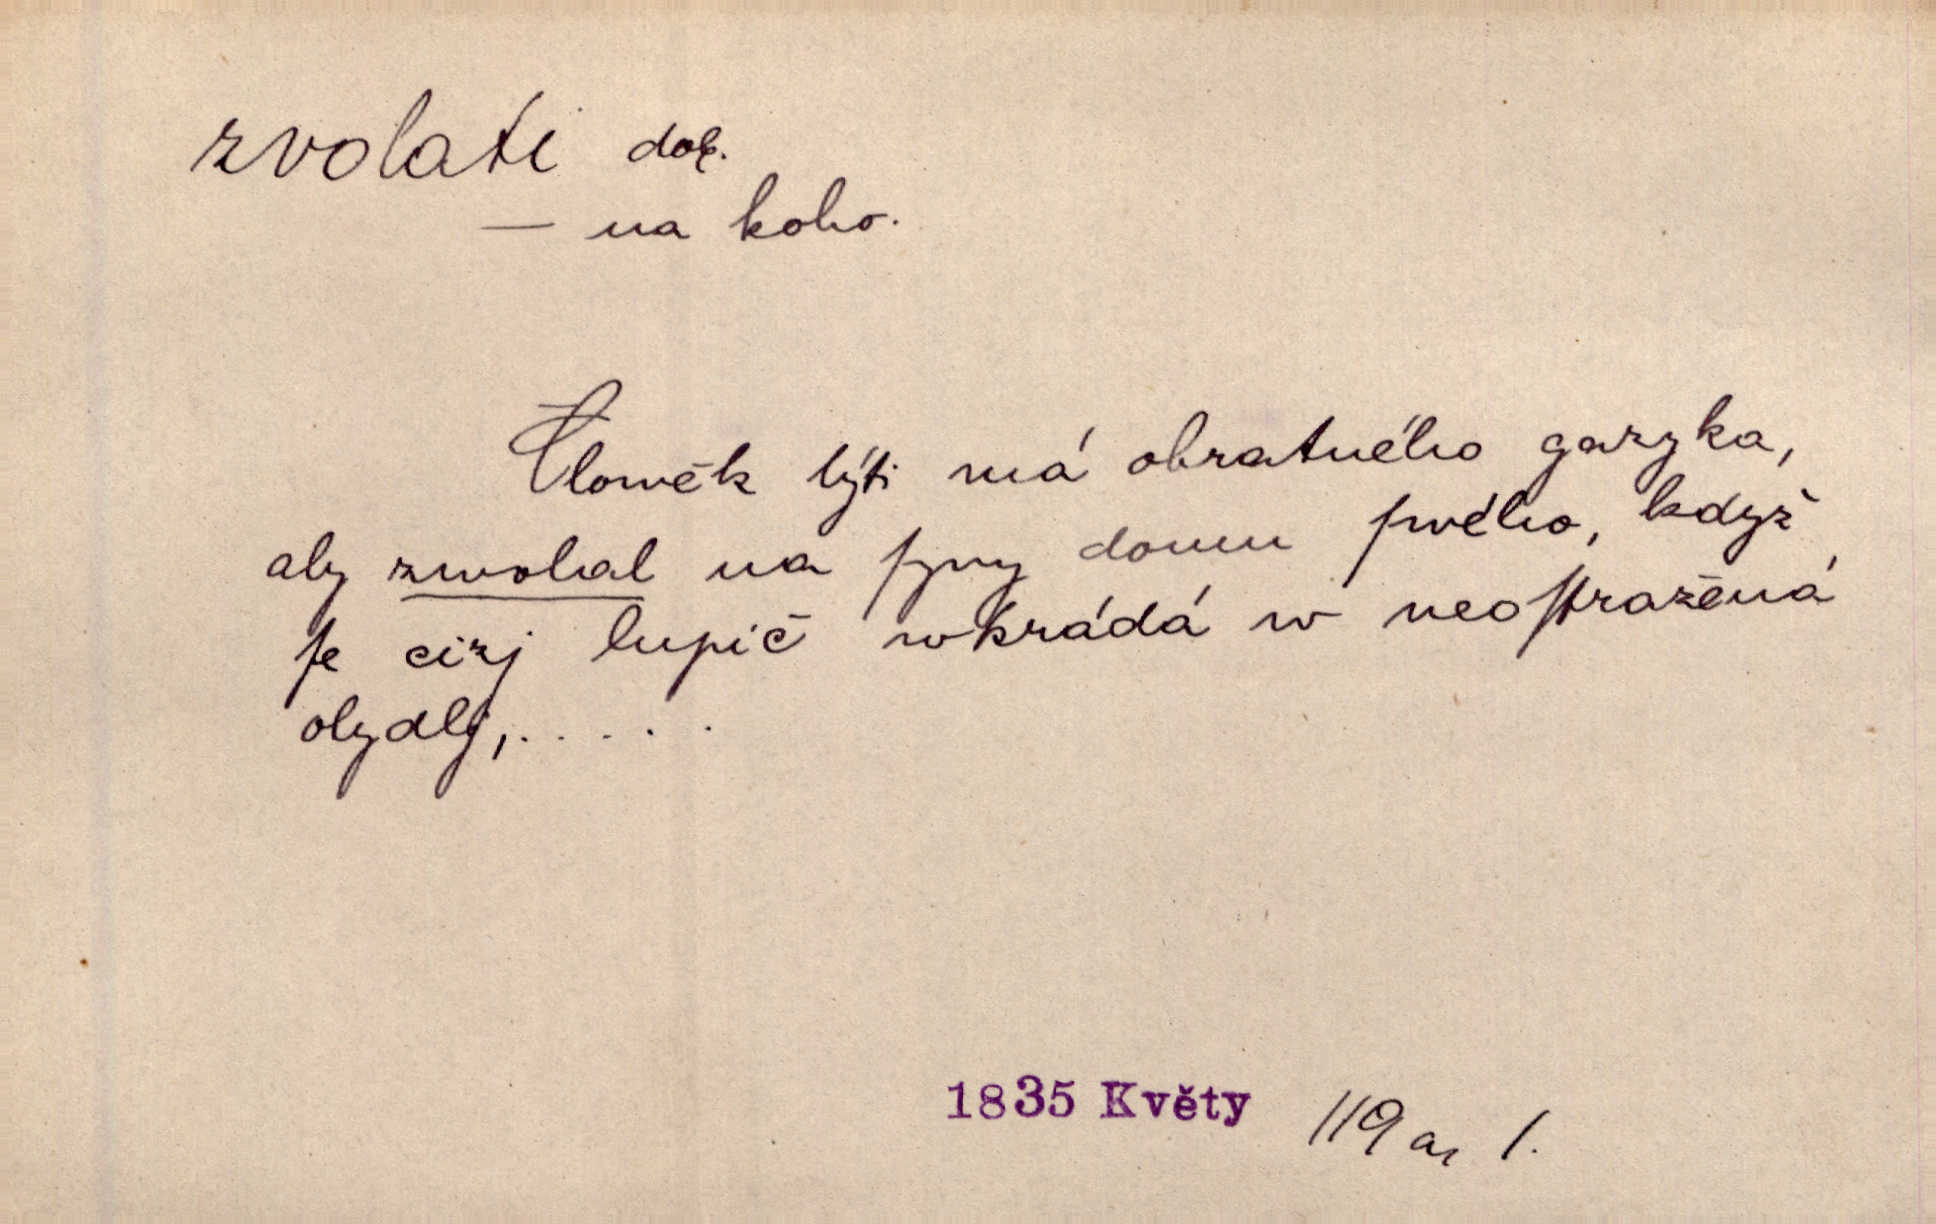 zvolati dok.
— na koho.
Člowěk býti má obratného gazyka,
aby zwolal na ſyny domu ſwého, když
ſe cizj lupič wkrádá w neoſtražená
obydlj, . . . . .
1835 Květy 119 a, 1.